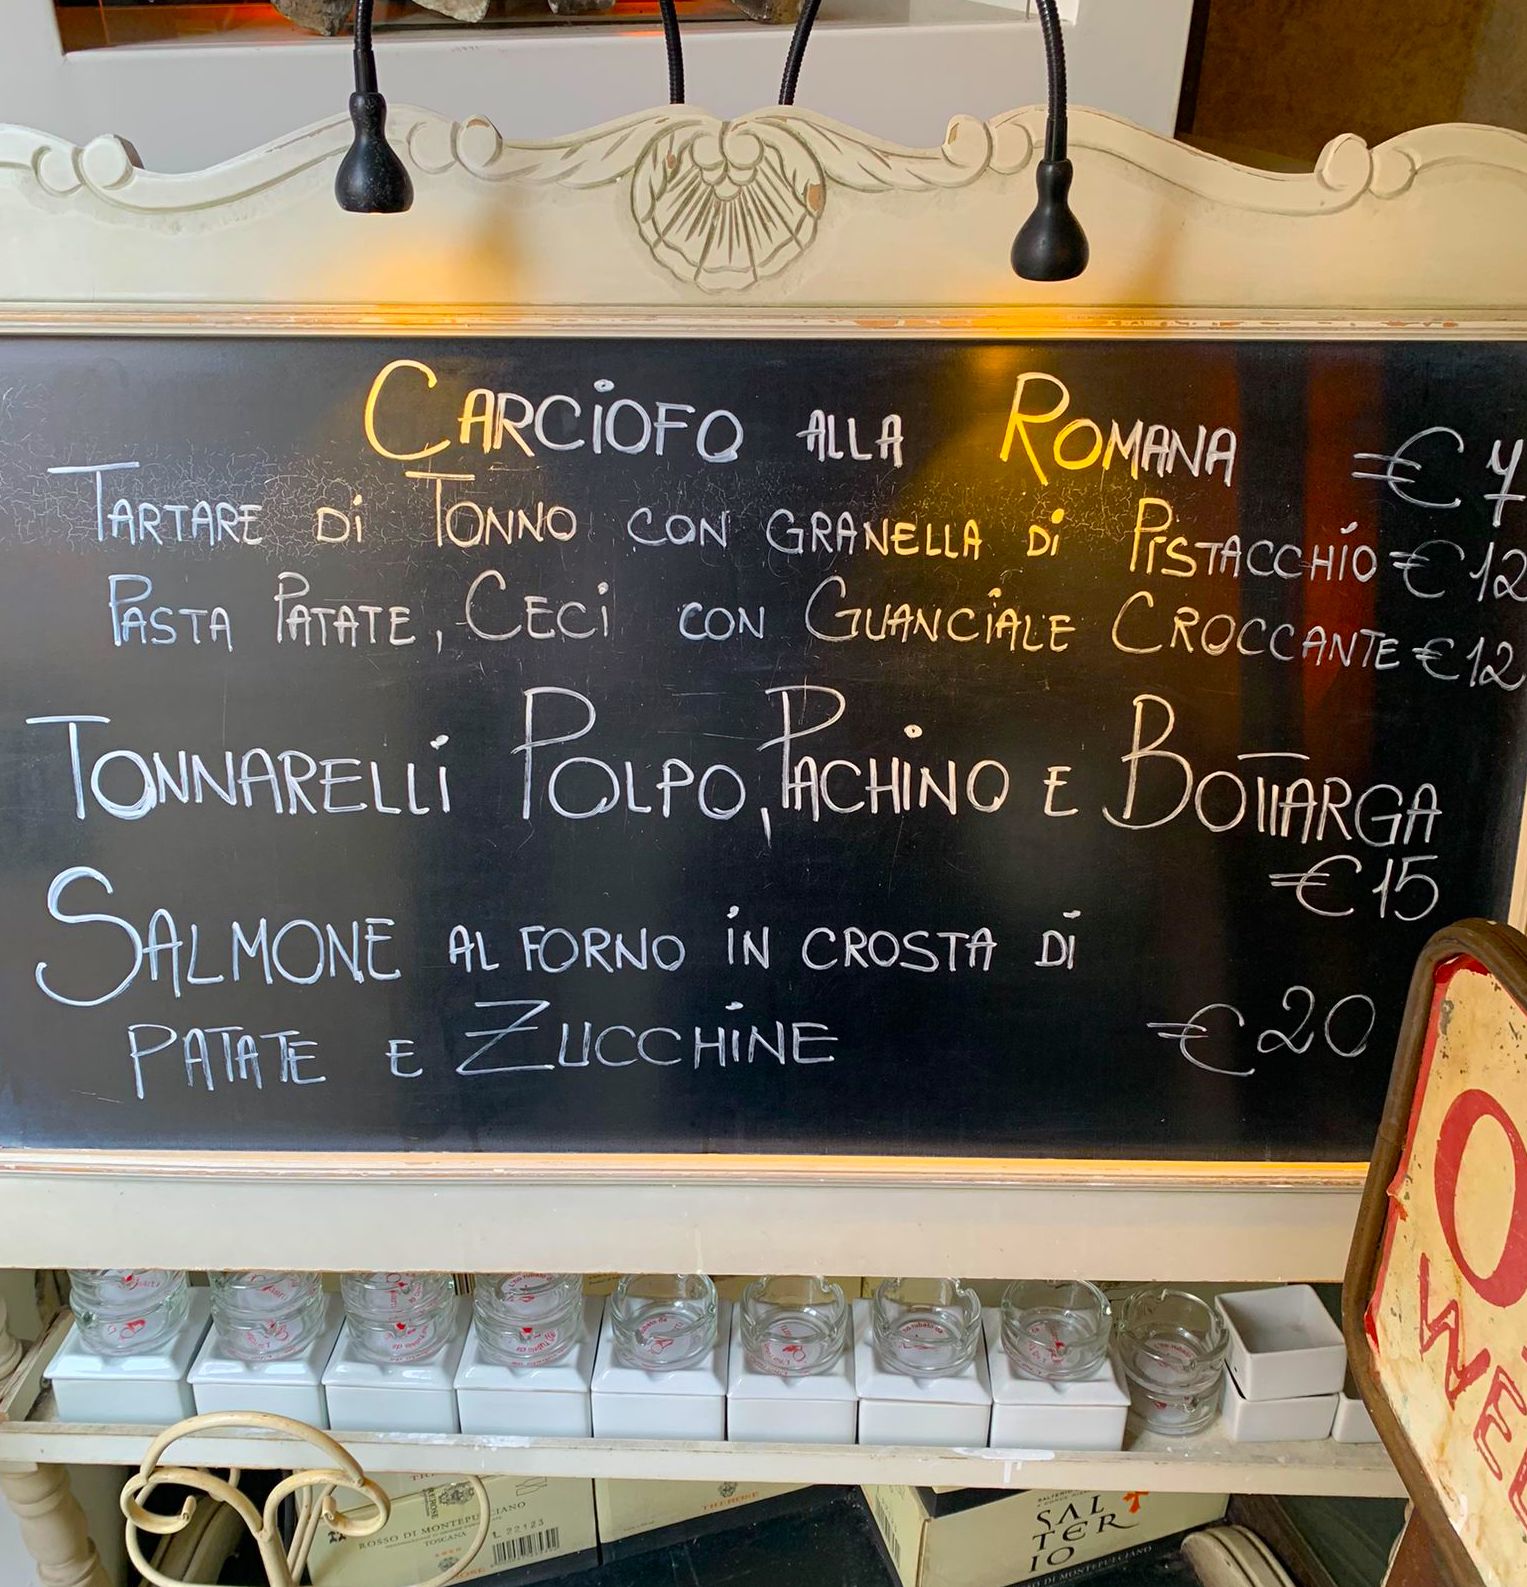 CARCIOFO ALLA ROMANA € 7
TARTARE DI TONNO CON GRANELLA DI PISTACCHIO € 12
PASTA PATATE, CECI CON GUANCIALE CROCCANTE € 12
TONNARELLI POLPO, PACHINO E BOTTARGA
€ 15
SALMONE AL FORNO IN CROSTA DI
PATATE E ZUCCHINE € 20
ROSSO DI MONTEPULCIANO
TOSCANA
L 22123
SAL
TER
IO